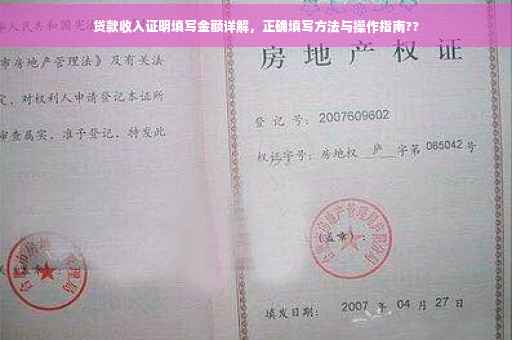 贷款收入证明填写金额详解，正确填写方法与操作指南??
人民共和国宪
市房地产管理法》及有关法
定，对权利人申请登记本证所
审查属实，准予登记，特发此
房地产权证
登记号：2007609602
权证字号：房地权 庐 字第 065042 号
(盖章)：
填发日期：2007 年 04 月 27 日